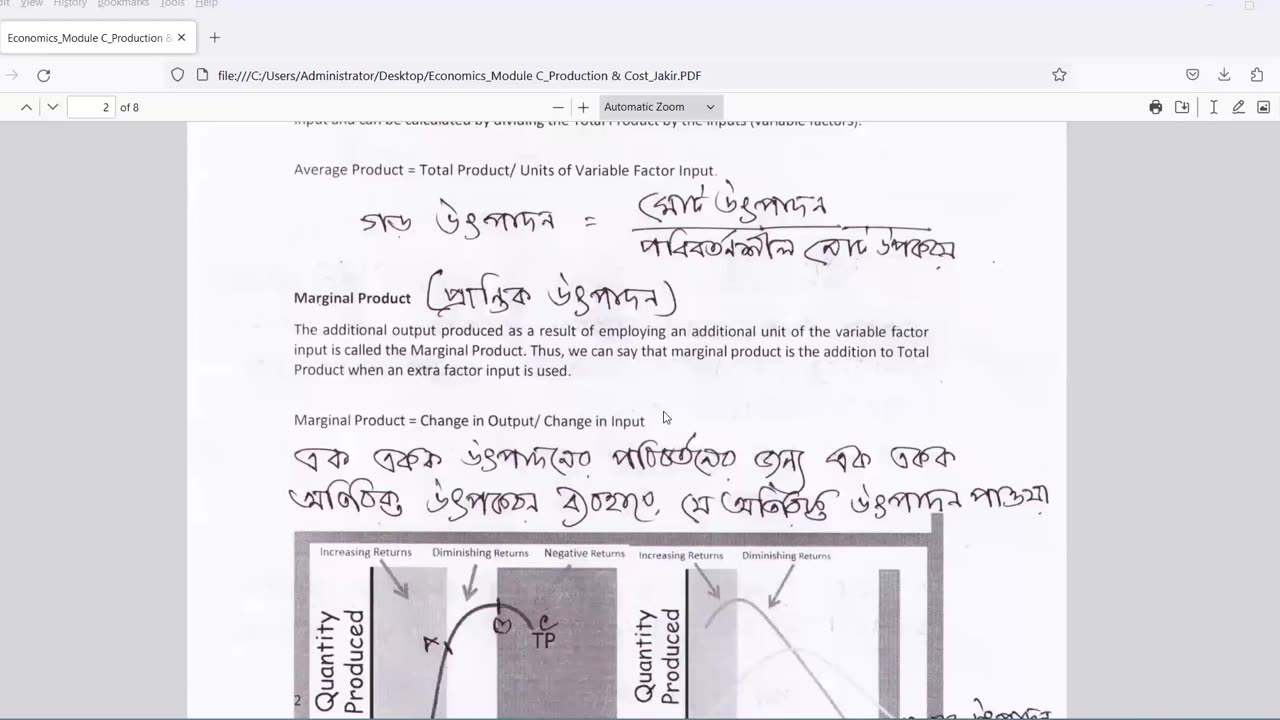 View History Bookmarks Tools Help
Economics_Module C_Production &
file:///C:/Users/Administrator/Desktop/Economics_Module C_Production & Cost_Jakir.PDF
2 of 8
Automatic Zoom
input and can be calculated by dividing the Total Product by the inputs (variable factors).
Average Product = Total Product/ Units of Variable Factor Input.
গড় উৎপাদন = মোট উৎপাদন
পরিবর্তনশীল মোট উপকরণ
Marginal Product (প্রান্তিক উৎপাদন)
The additional output produced as a result of employing an additional unit of the variable factor
input is called the Marginal Product. Thus, we can say that marginal product is the addition to Total
Product when an extra factor input is used.
Marginal Product = Change in Output/ Change in Input
এক একক উৎপাদনের পরিবর্তনের জন্য এক একক
অতিরিক্ত উৎপকরন ব্যবহারে, যে অতিরিক্ত উৎপাদন পাওয়া
Increasing Returns Diminishing Returns Negative Returns Increasing Returns Diminishing Returns
Quantity Produced
TP
Quantity Produced
2